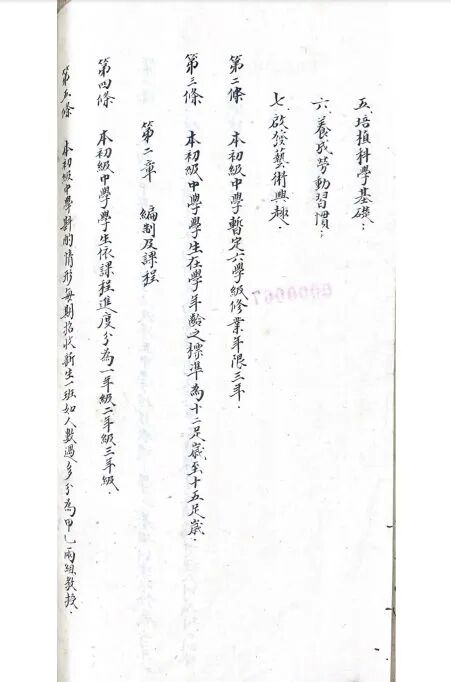 五、培植科學基礎：
六、養成勞動習慣：
七、啟發藝術興趣．
第二條　本初級中學暫定六學級修業年限三年．
第三條　本初級中學學生在學年齡之標準為十二足歲至十五足歲．
第二章　編制及課程
第四條　本初級中學學生依課程進度分為一年級二年級三年級．
第五條　本初級中學斟酌情形每期招收新生一班如人數過多分為甲乙兩組教授．
0000067